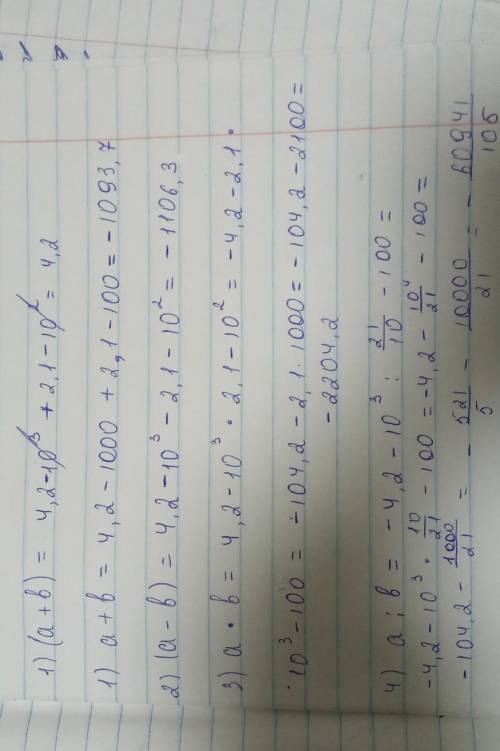 1) (a+b) = 4,2-10³ + 2,1-10² = 4,2
1) a+b = 4,2-1000 + 2,1-100 = -1093,7
2) (a-b) = 4,2-10³ - 2,1-10² = -1106,3
3) a · b = 4,2-10³ · 2,1-10² = -4,2-2,1 ·
· 10³-100 = -104,2-2,1 · 1000 = -104,2-2100 =
-2204,2
4) a : b = -4,2-10³ : 21/10 - 100 =
-4,2-10³ · 10/21 - 100 = -4,2 - 10⁴/21 - 100 =
-104,2 - 1000/21 = - 521/5 - 10000/21 = - 60941/105